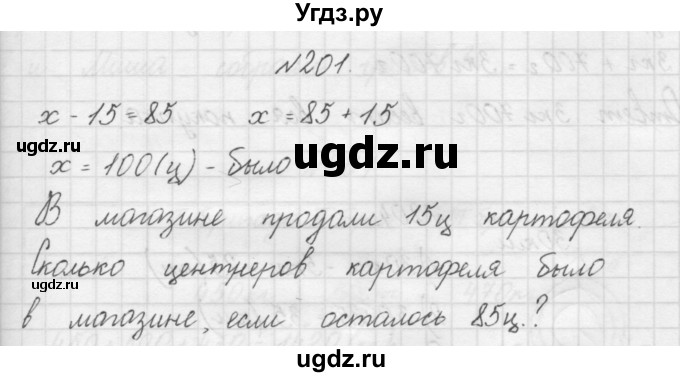 Угдз.ру
№201.
x - 15 = 85 x = 85 + 15
ugdz.ru ugdz.ru
x = 100(ц) - было
ugdz.ru
В магазине продали 15ц картофеля.
Сколько центнеров картофеля было
ugdz.ru ugdz.ru
в магазине, если осталось 85ц.?
ugdz.ru